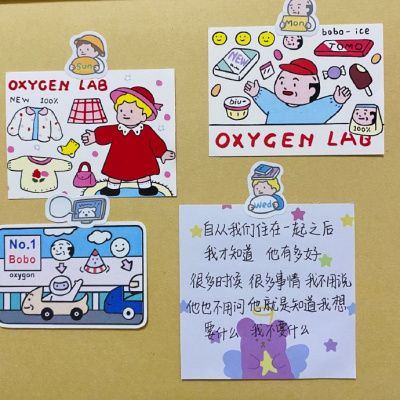 Sun
OXYGEN LAB
NEW 100%
Mon
bobo-ice
NEW
TOMO
biu~
100%
OXYGEN LAB
No.1
Bobo
oxygon
Wed
自从我们住在一起之后
我才知道 他有多好
很多时候 很多事情 我不用说
他也不用问 他就是知道我想
要什么 我不要什么